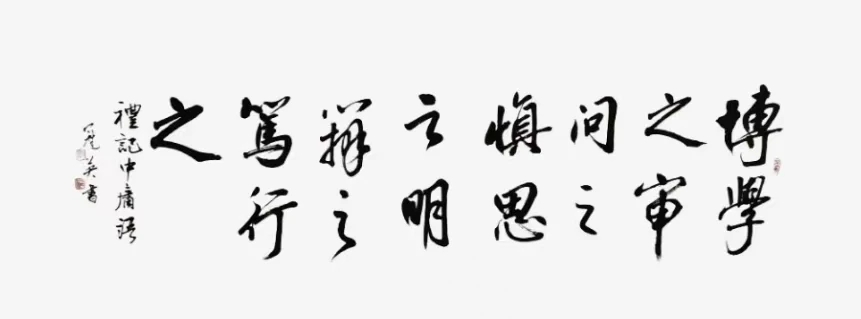 博學
之审
問之
慎思
之明
辯之
篤行
之
禮記中庸語
英書